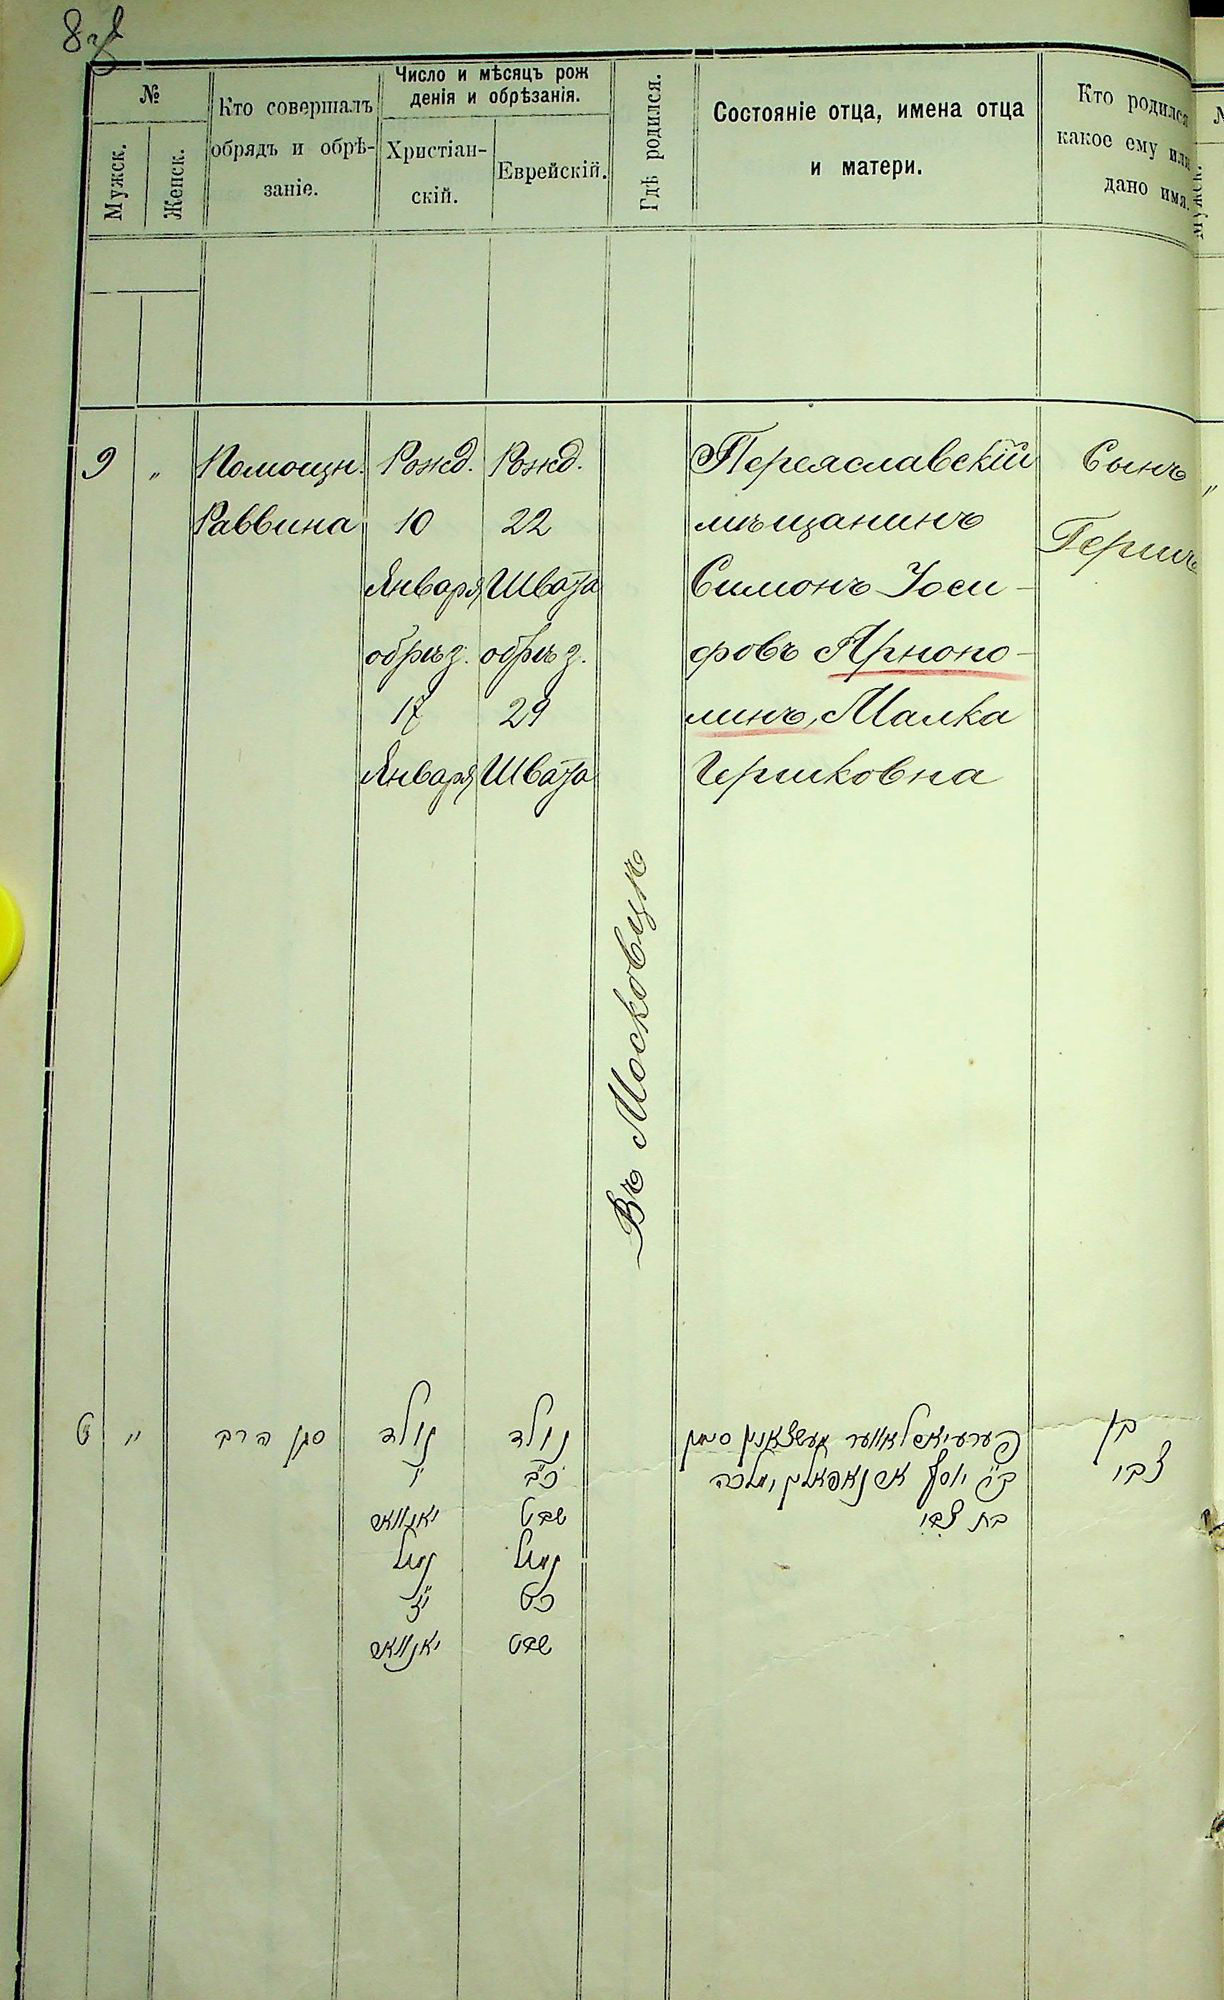 8 об
№
Мужск.
Женск.
Кто совершалъ
обрядъ и обрѣ-
заніе.
Число и мѣсяцъ рож
денія и обрѣзанія.
Христіан-
скій.
Еврейскій.
Гдѣ родился.
Состояніе отца, имена отца
и матери.
Кто родился
какое ему или
дано имя.
№
Мужск.
9
"
Помощн.
Раввина
Рожд.
10
Января
обрѣз.
17
Января
Рожд.
22
Швата
обрѣз.
29
Швата
Въ Московцѣ
Переяславскій
мѣщанинъ
Симонъ Іоси-
фовъ Арнопо-
линъ, Малка
Гершковна
Сынъ
Гершъ
"
ט
"
סגן הרב
נולד
י'
יאנוואר
נימול
י"ז
יאנוואר
נולד
כ"ב
שבט
נימול
כט
שבט
פערעיאסלאווער מעשצאנין סימן
ב"ר יוסף ארנאפאלין ומלכה
בת צבי
בן
צבי